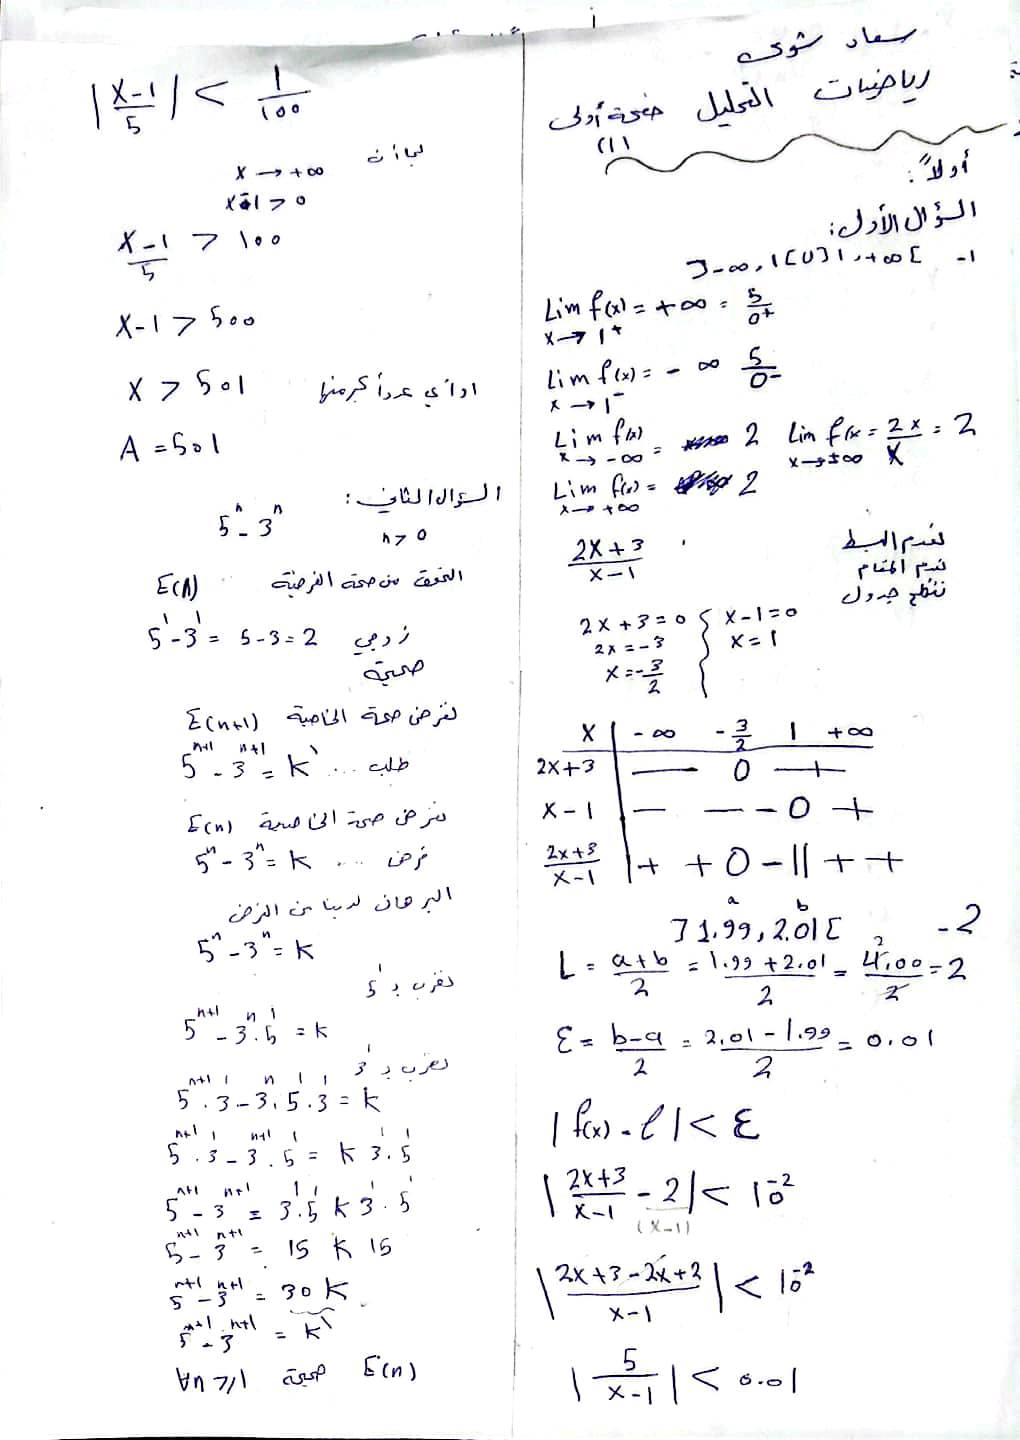 سعاد شوى
رياضيات التحليل صفحة أولى
(1)
أولاً:
السؤال الأول:
1- ]-∞, 1[ U ]1, +∞[
Lim f(x) = +∞ = 5/0+
x → 1+
Lim f(x) = -∞ 5/0-
x → 1-
Lim f(x) = 2 Lim f(x = 2x/x = 2
x → -∞ x → ±∞
Lim f(x) = 2
x → +∞
2x+3/x-1
نعدم البسط
نعدم المقام
ننظم جدول
2x+3=0 { x-1=0
2x=-3 x=1
x=-3/2
x | -∞ -3/2 1 +∞
2x+3 — 0 — +
x-1 — — - 0 +
2x+3/x-1 | + + 0 - || + +
a b
2- ]1.99, 2.01[
L = a+b/2 = 1.99+2.01/2 = 4.00/2 = 2
ε = b-a/2 = 2.01-1.99/2 = 0.01
|f(x) - l| < ε
|2x+3/x-1 - 2| < 10^-2
(x-1)
|2x+3-2x+2/x-1| < 10^-2
|5/x-1| < 0.01
|x-1/5| < 1/100
بما أن
x → +∞
x-1 > 0
x-1/5 > 100
x-1 > 500
x > 501 او أي عدد أكبر منها
A = 501
السؤال الثاني:
5^n - 3^n n > 0
التحقق من صحة الفرضية E(1)
5^1 - 3^1 = 5-3=2 زوجي
صحيحة
نفرض صحة الخاصة E(n+1)
5^n+1 - 3^n+1 = k` ... طلب
نفرض صحة الخاصة E(n)
5^n - 3^n = k ... فرض
البرهان لدينا من الفرض
5^n - 3^n = k
نضرب بـ 5^1
5^n+1 - 3^n.5^1 = k
نضرب بـ 3^1
5^n+1.3^1 - 3^n.5^1.3^1 = k
5^n+1.3^1 - 3^n+1.5^1 = k 3^1.5^1
5^n+1 - 3^n+1 = 3^1.5^1 k 3^1.5^1
5^n+1 - 3^n+1 = 15 k 15
5^n+1 - 3^n+1 = 30 k
5^n+1 - 3^n+1 = k`
E(n) صحيحة ∀n>1